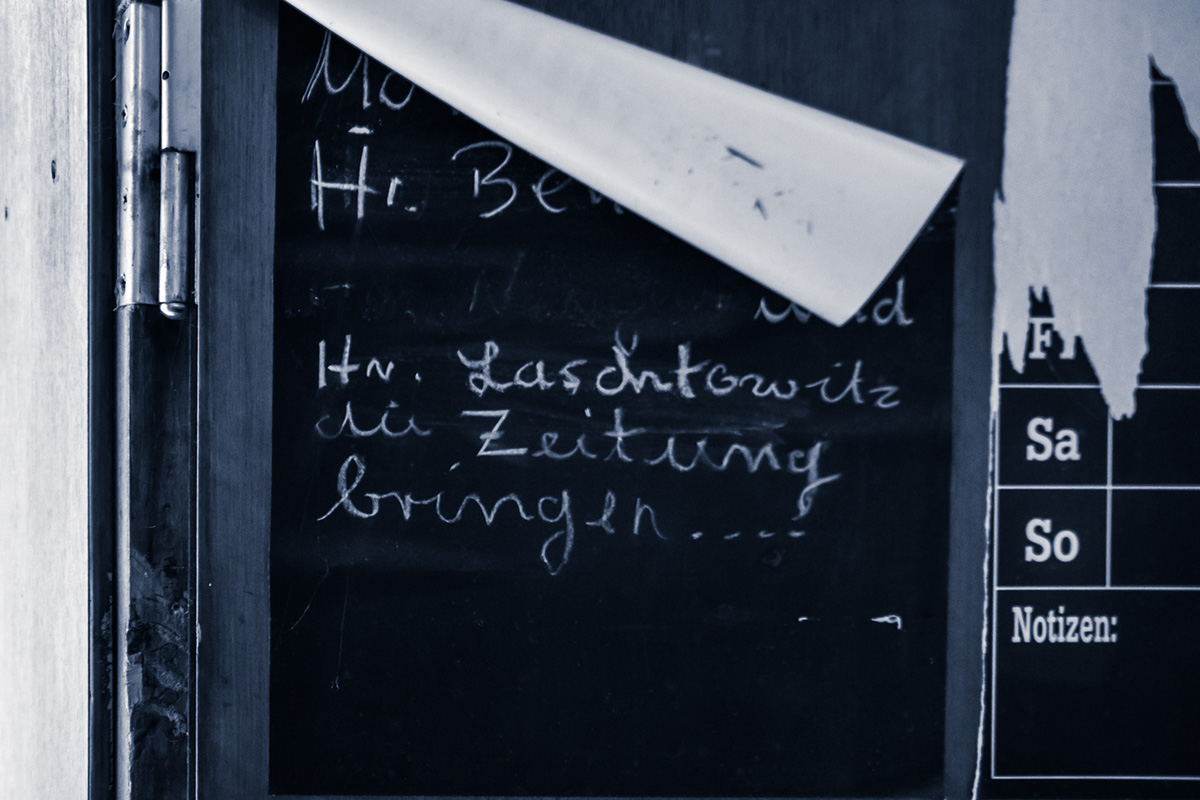 Mo
Hr. Be
und
Hr. Laschtowitz
die Zeitung
bringen....
Fr
Sa
So
Notizen: